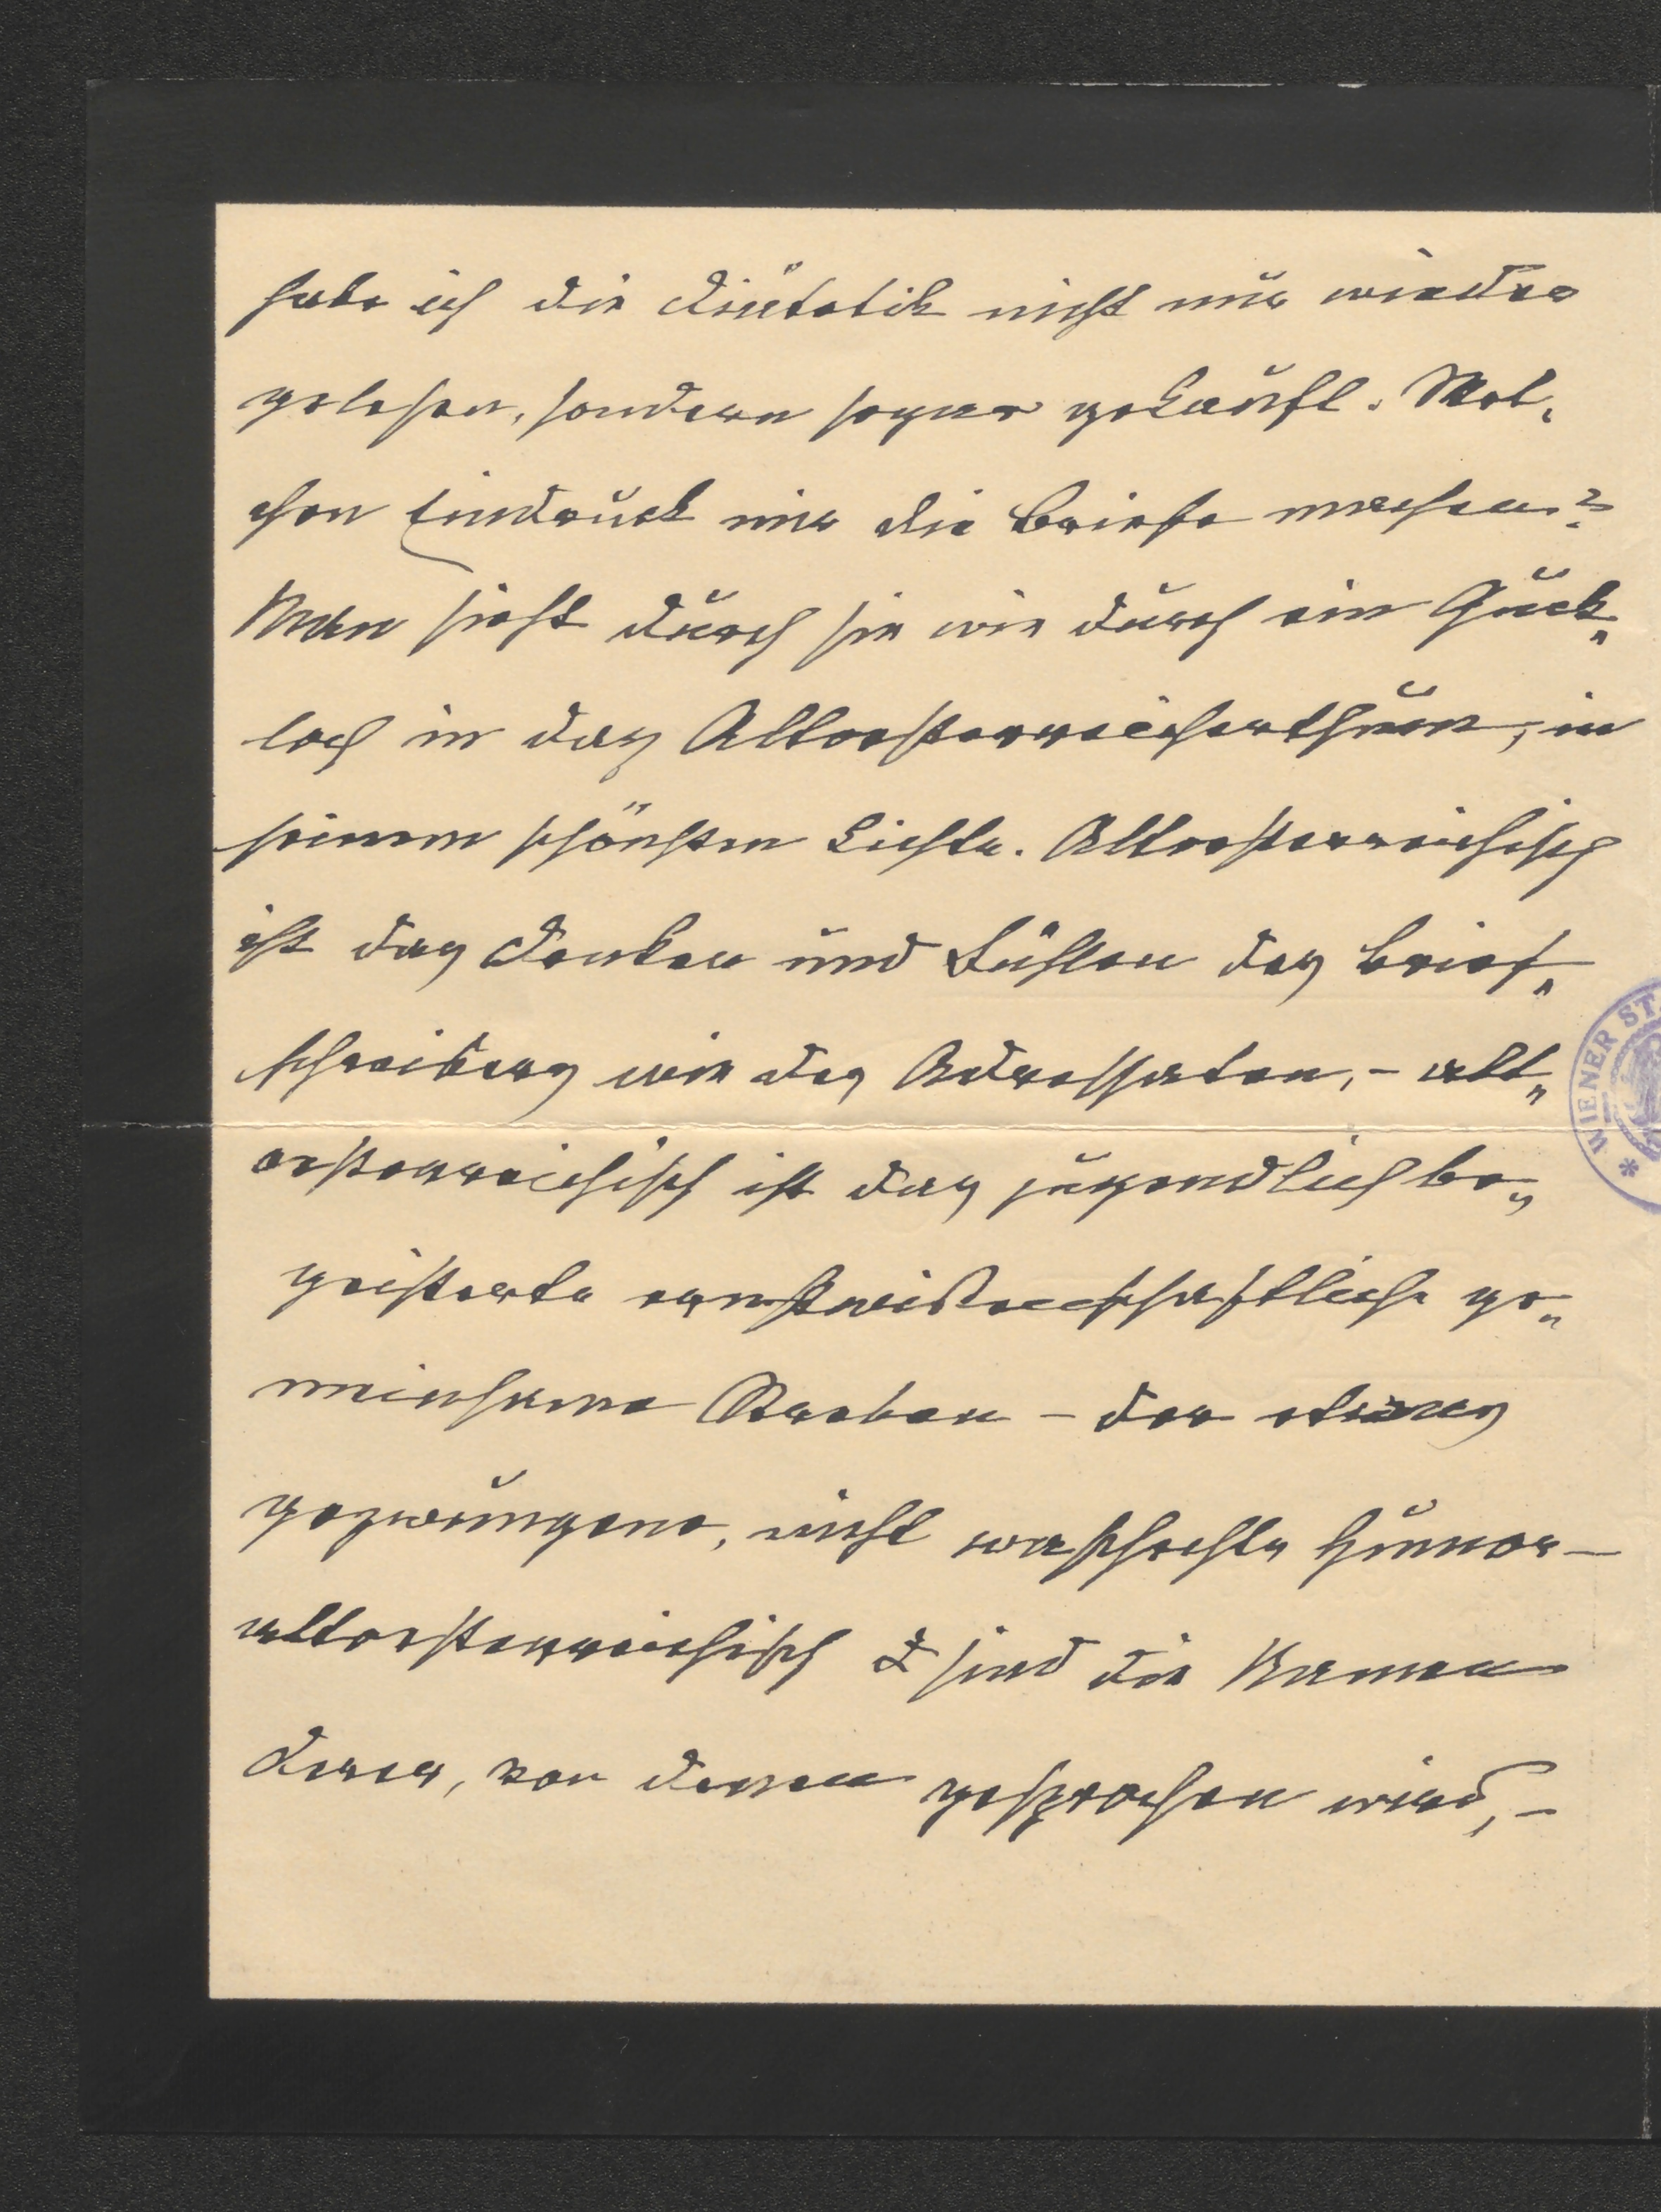 habe ich die Diätetik nicht nur wieder
gelesen, sondern sogar gekauft. Wel„
chen Eindruck mir die Briefe machen?
Man sieht durch sie wie durch ein Guck„
loch in das Altoesterreicherthum, in
seinem schönsten Lichte. Altoesterreichisch
ist das Denken und Fühlen des Brief„
schreibers wie des Adressaten, – alt„
oesterreichisch ist das jugendlich be„
geisterte ernst wissenschaftliche ge„
meinsame Streben – der etwas
gezwungene, nicht waschechte Humor –
altoesterreichisch sind die Namen
derer, von denen gesprochen wird, –
WIENER ST